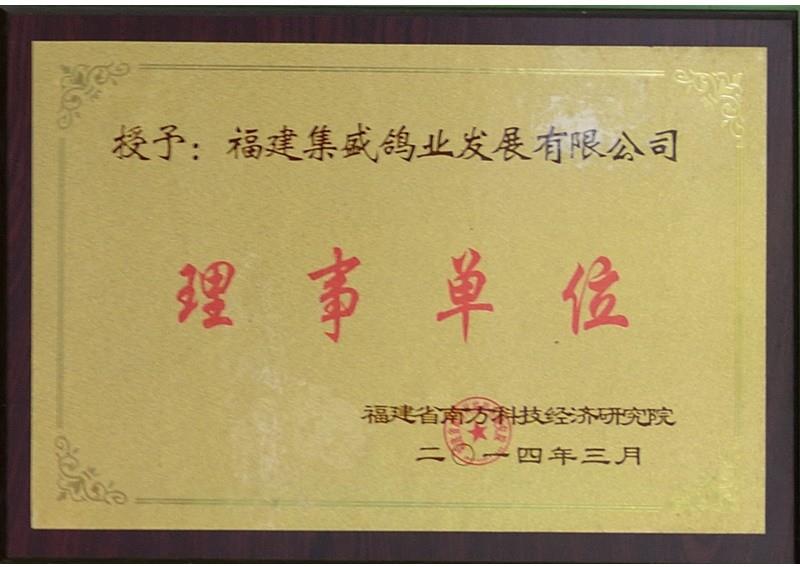 授予：福建集盛鸽业发展有限公司
理事单位
福建省南方科技经济研究院
二〇一四年三月